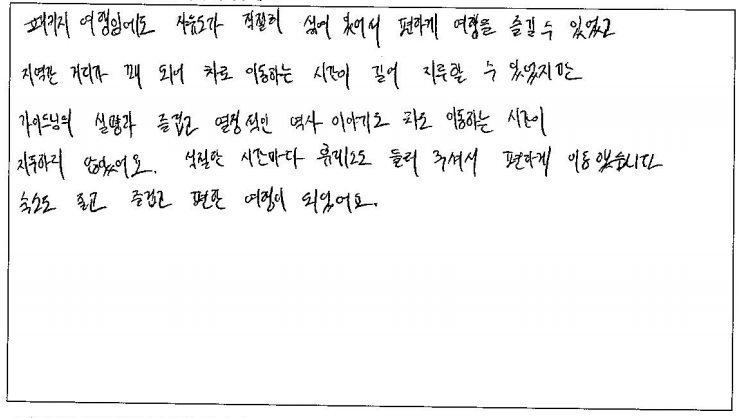 패키지 여행임에도 자유도가 적절히 섞여 있어서 편하게 여행을 즐길 수 있었고
지역간 거리가 꽤 되어 차로 이동하는 시간이 길어 지루할 수 있었지만
가이드님의 설명과 즐겁고 열정적인 역사 이야기로 차로 이동하는 시간이
지루하지 않았어요. 적절한 시간마다 휴게소도 들러 주셔서 편하게 이동했습니다
숙소도 좋고 즐겁고 편한 여행이 되었어요.